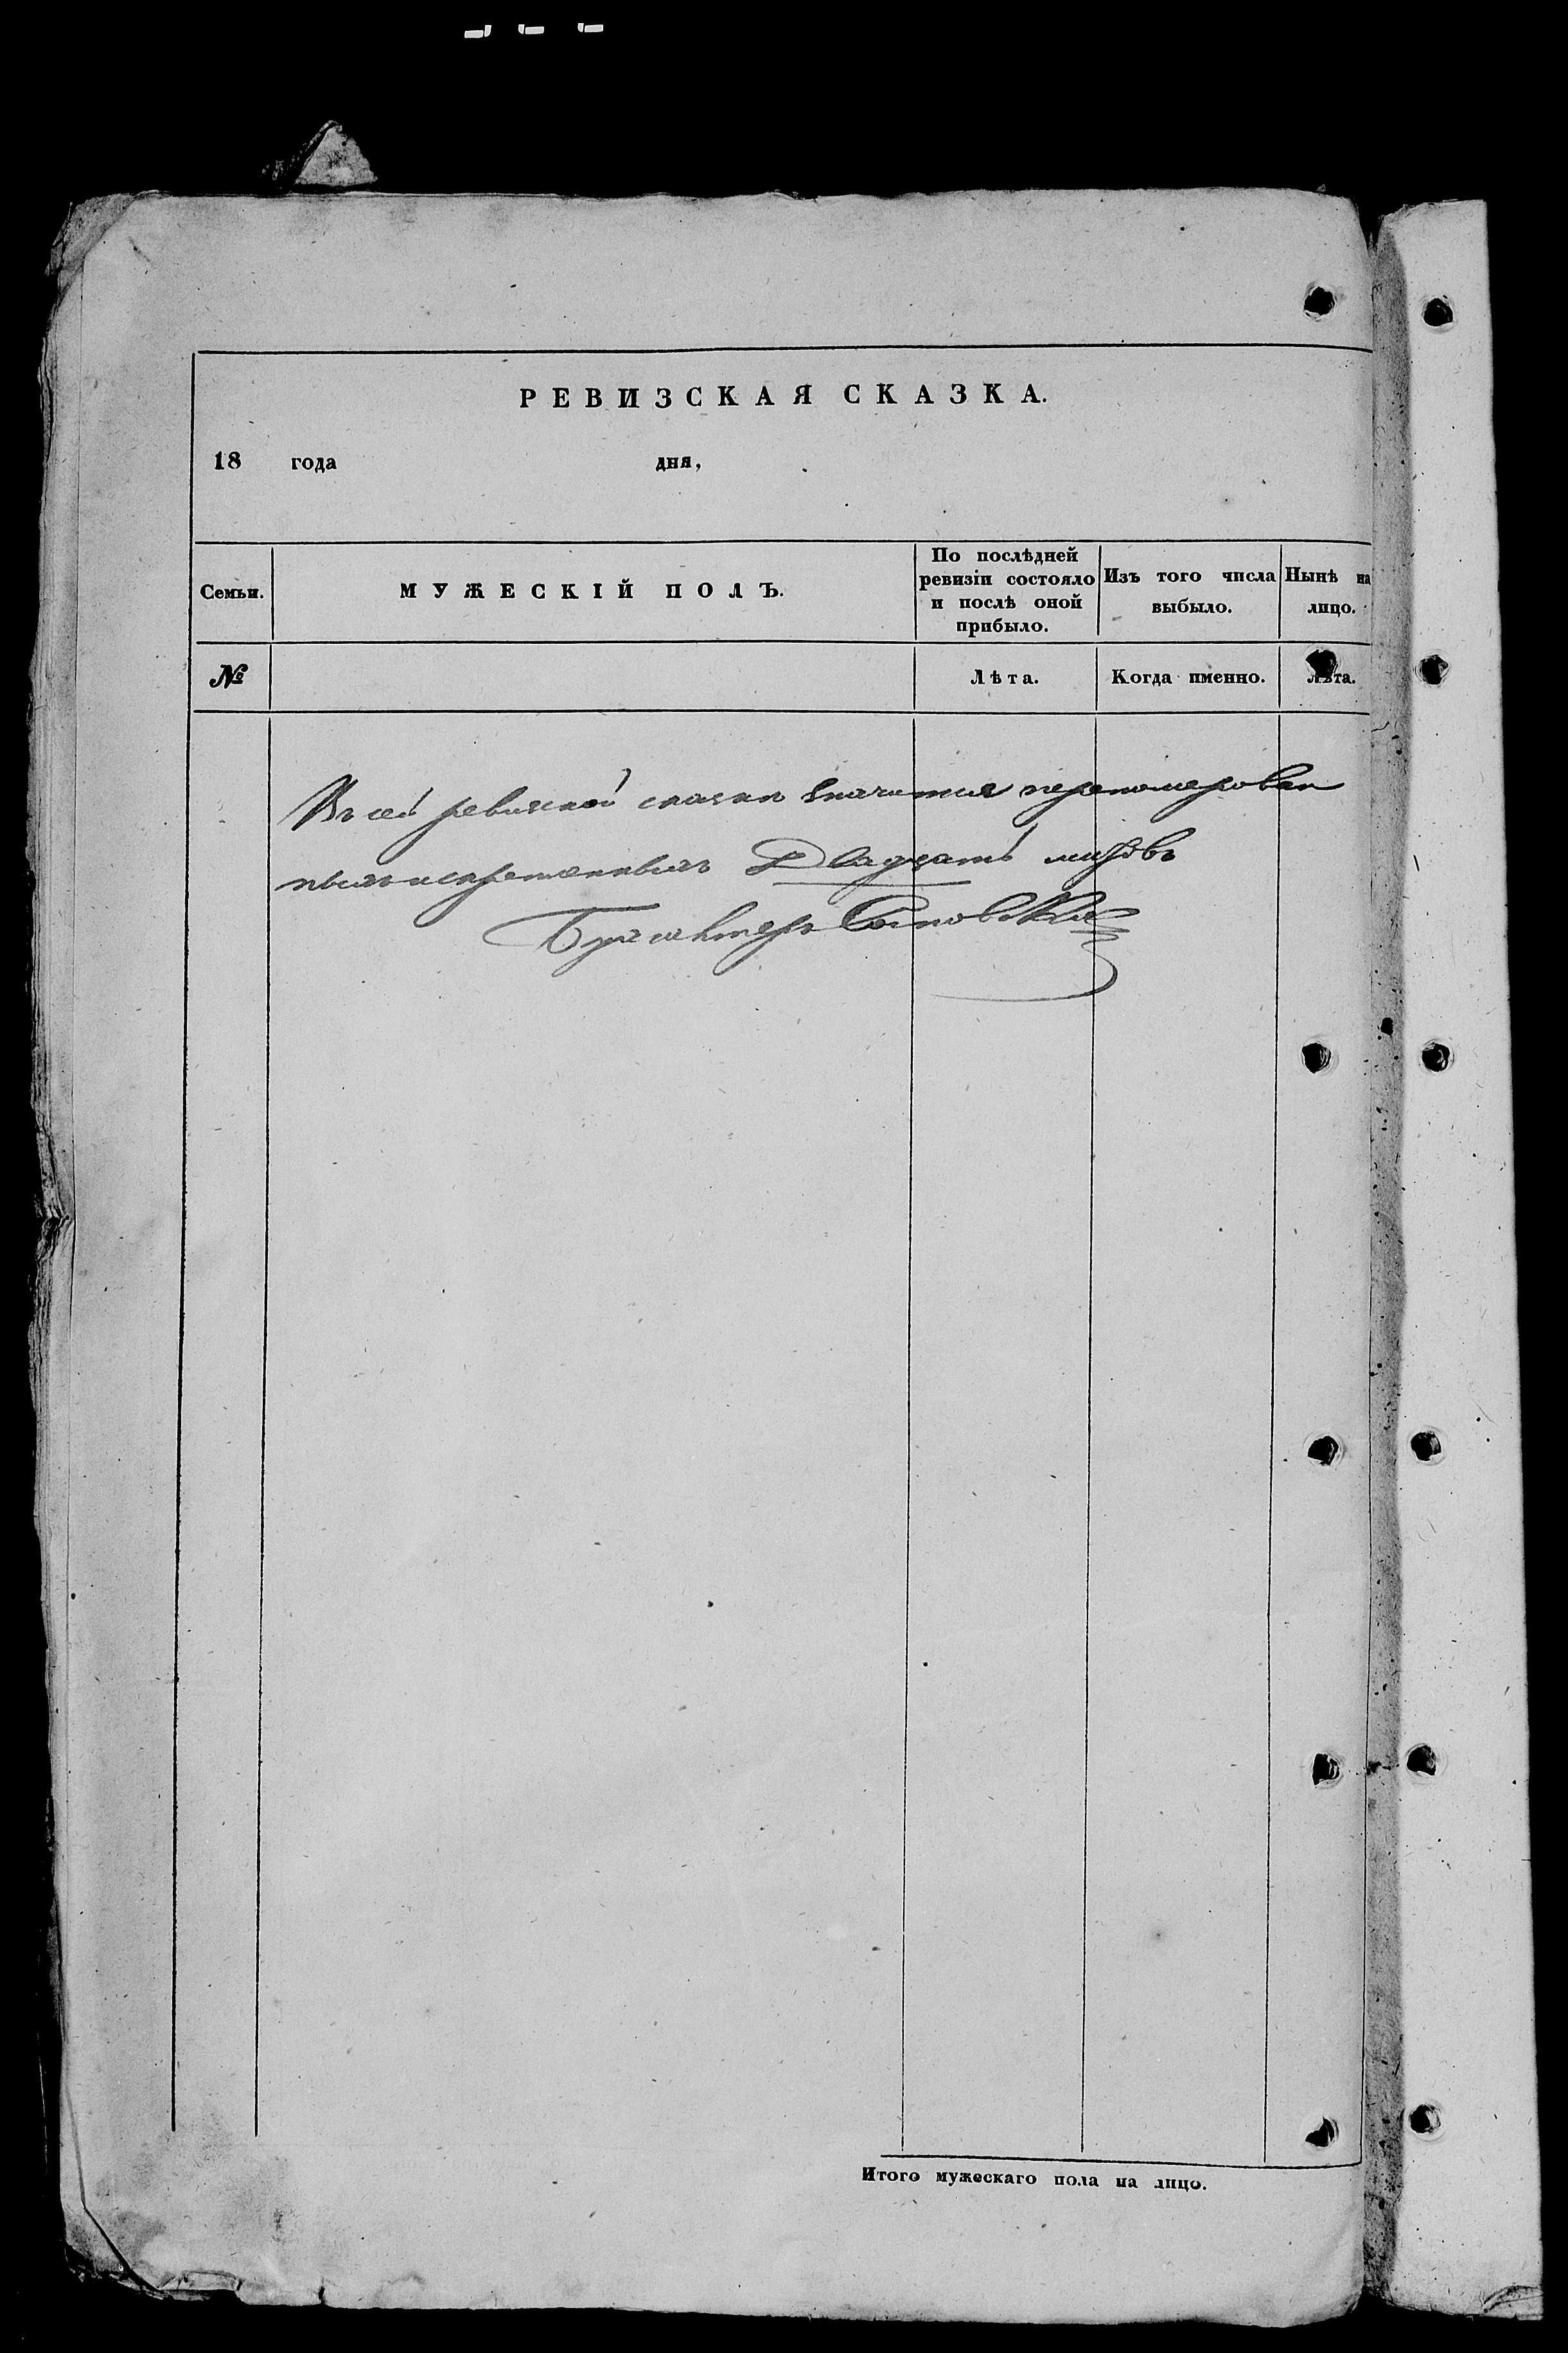 РЕВИЗСКАЯ СКАЗКА.
18 года дня,
Семьи.
МУЖЕСКІЙ ПОЛЪ.
По послѣдней
ревизіи состояло
и послѣ оной
прибыло.
Изъ того числа
выбыло.
Нынѣ на
лицо.
№
Лѣта.
Когда именно.
Лѣта.
Въ сей ревизской сказкѣ значится перономерован
ныхъ и скрепленныхъ Двадцать листовъ
Бухгалтеръ
Итого мужескаго пола на лицо.